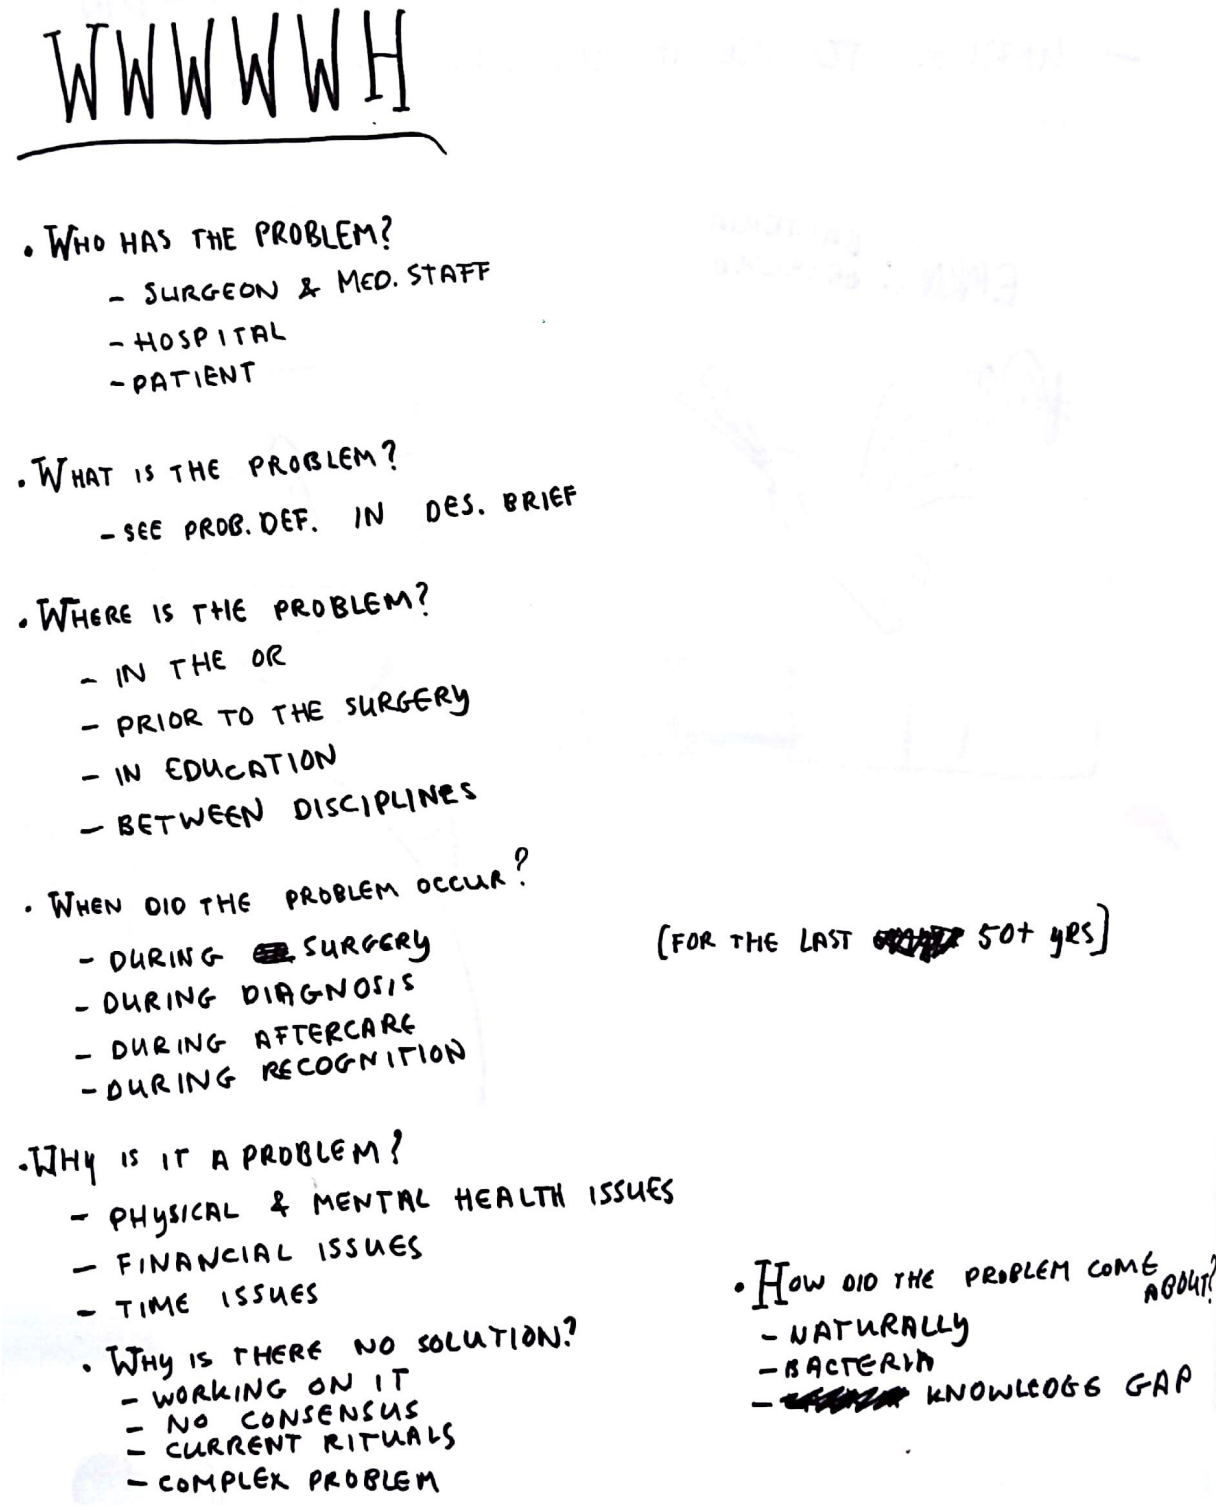 WWWWWH
• WHO HAS THE PROBLEM?
- SURGEON & MED. STAFF
- HOSPITAL
- PATIENT
• WHAT IS THE PROBLEM?
- SEE PROB. DEF. IN DES. BRIEF
• WHERE IS THE PROBLEM?
- IN THE OR
- PRIOR TO THE SURGERY
- IN EDUCATION
- BETWEEN DISCIPLINES
• WHEN DID THE PROBLEM OCCUR?
- DURING SURGERY
[FOR THE LAST 50+ yRS]
- DURING DIAGNOSIS
- DURING AFTERCARE
- DURING RECOGNITION
• WHy IS IT A PROBLEM?
- PHySICAL & MENTAL HEALTH ISSUES
- FINANCIAL ISSUES
- TIME ISSUES
• WHy IS THERE NO SOLUTION?
- WORKING ON IT
- NO CONSENSUS
- CURRENT RITUALS
- COMPLEX PROBLEM
• HOW DID THE PROBLEM COME
ABOUT?
- NATURALLy
- BACTERIA
- KNOWLEDGE GAP